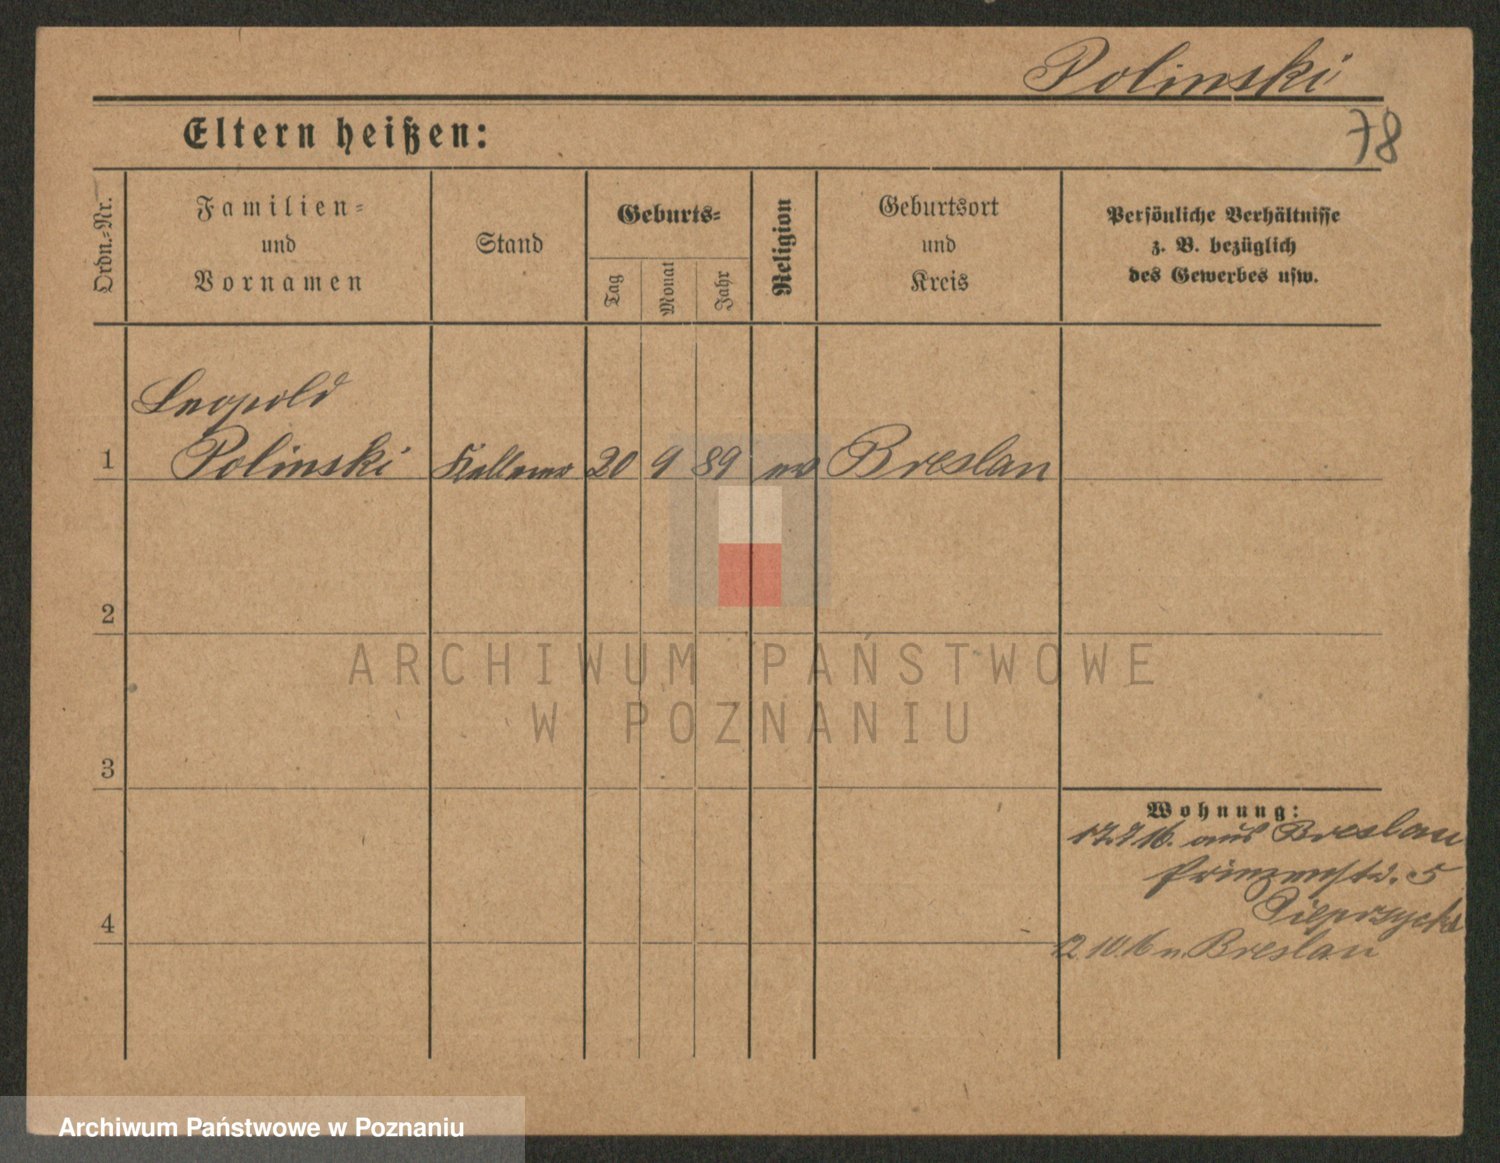 Polinski
78
Eltern heißen:
Ordn.-Nr.
Familien-
und
Vornamen
Stand
Geburts-
Tag
Monat
Jahr
Religion
Geburtsort
und
Kreis
Persönliche Verhältnisse
z. B. bezüglich
des Gewerbes usw.
Leopold
1 Polinski Kellner 20 9 89 ev Breslau
2
ARCHIWUM PAŃSTWOWE
W POZNANIU
3
Wohnung:
aus Breslau
Prinzenstr. 5
4
12.10.16 n. Breslau
Archiwum Państwowe w Poznaniu